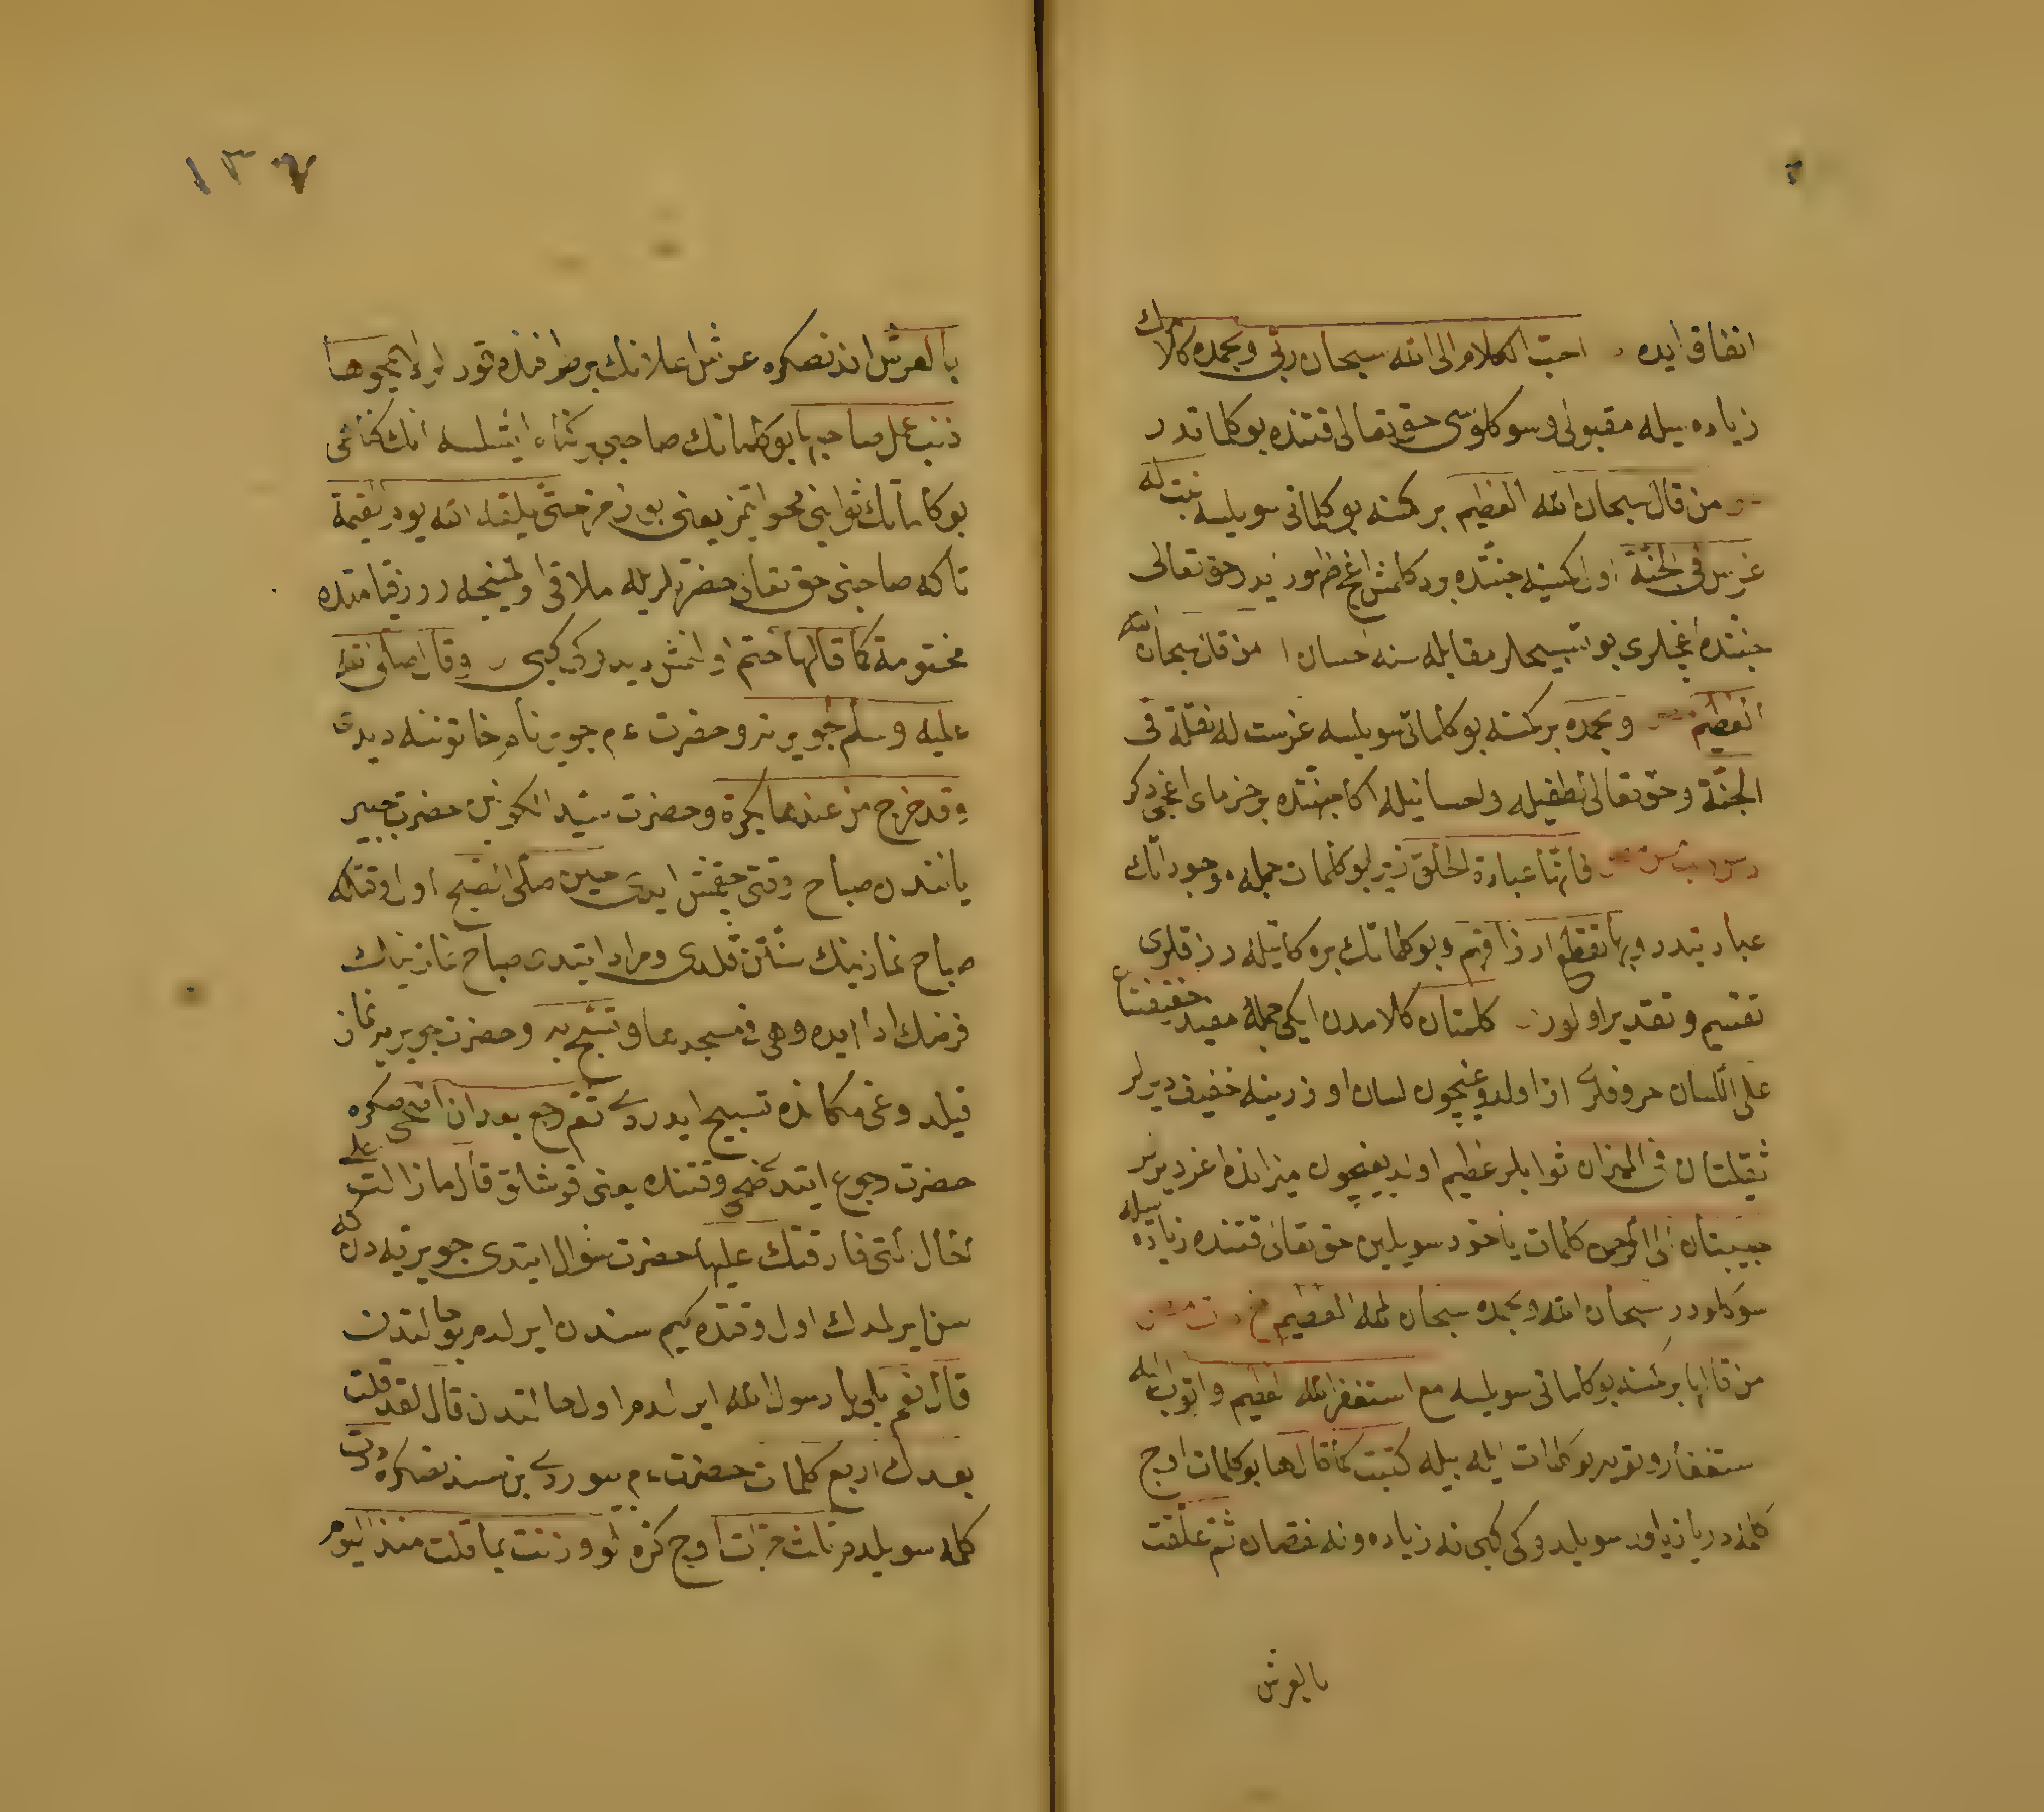 انفاق ایده احب الكلام الى الله سبحان ربی وبحمده كلامك
زیاده سیله مقبولی وسوكلوسی حق تعالی قتنده بو كلماتدر
من قال سبحان الله العظیم بر كمسنه بو كلماتی سویلسه نبت له
غرس فی الجنة اول كمسنیه جنتده بر دكلمش اغج ظهور ایدر حق تعالی
جنتده اغجلری بو تسبیحلر مقابله سنه احسان من قال سبحان الله
العظیم وبحمده بر كمسنه بو كلماتی سویلسه غرست له نخلة فی
الجنة وحق تعالی لطفیله واحسانیله اكا جنتده بر خرما اغجی دكر
فانها عبادة الخلق زیرا بو كلمات جمله موجوداتك
عبادتیدر وبها تقطع ارزاقهم وبو كلماتك بركاتیله رزقلری
تقسیم وتقدیر اولور كلمتان كلامدن ایكی جملۀ مفید خفیفتان
على اللسان حروفلری از اولدوغیچون لسان اوزرینه خفیف دیرلر
ثقیلتان فی المیزان ثوابلر عظیم اولدیغیچون میزانده اغر دیرلر
حبیبتان الى الرحمن كلمات یاخود سویلین حق تعالی قتنده زیاده سیله
سوكلودر سبحان الله وبحمده سبحان الله العظیم
من قالها بر كمسنه بو كلماتی سویلسه مع استغفر الله العظیم واتوب الیه
ستغفار وتوبه بو كلمات ایله بیله كتبت كما قالها بو كلمات اوج
كلمه در یازیلور سویلدوكی كبی نه زیاده ونه نقصان ثم علقت
بالعرش
١٣٧
بالعرش اندنصكره عرش اعلانك بر طرفنده قور لا یمحوها
ذنب عمل صاحبها بو كلماتك صاحبی بر كناه ایشلسه انك كناهی
بو كلماتك ثوابنی محو ایتمز یعنی بوزمز حتى یلقى الله یوم القیمة
تا كه صاحبی حق تعالی حضرتلریله ملاقی اولمینجه روز قیامتده
مختومة كما قالها ختم اولنمش دیدوكی كبی وقال صلى الله
علیه وسلم لجویریة وحضرت ءم جویریه نام خاتوننه دیدی
وقد خرج من عندها بكرة وحضرت سید الكونین حضرت جبیر
یانندن صباح وقتی چقمش ایدی حین صلى الصبح اول وقتكه
صباح نمازینك سنتن قلدی ومراد ایتدی صباح نمازینك
فرضك ادا ایده وهی فی مسجدها وتسبح به وحضرت جویریه نماز
قیلدوغی مكانده تسبیح ایدردی ثم رجع بعد ان اضحى صكره
حضرت رجوع ایتدی ضحى وقتنده یعنی قوشلق قال ما زالت على
الحال التی فارقتك علیها حضرت سؤال ایتدی جویریه دن كه
سن ایرلمدك اول وقتده كیم سندن ایرلدم بو حالتدن
قالت نعم بلی یا رسول الله ایرلمدم اول حالتدن قال لقد قلت
بعدك اربع كلمات حضرت ءم بیوردی بن سندنصكره درت
كلمه سویلدم ثلث مرات اوج كره لو وزنت بما قلت منذ الیوم